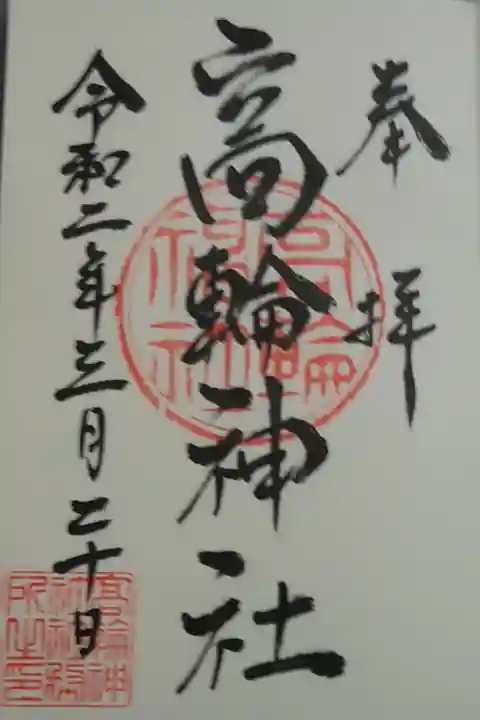 奉拝
高輪神社
令和二年三月二十日
高輪神社